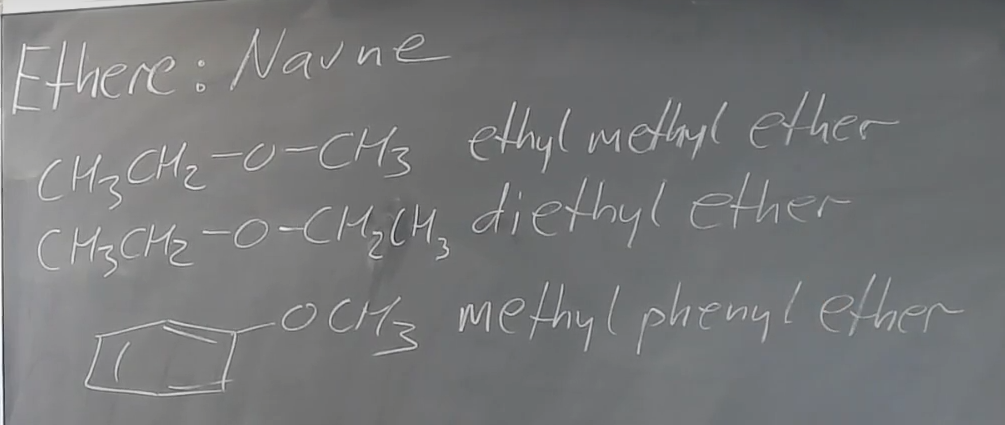 Ethere: Navne
CH3CH2-O-CH3 ethyl methyl ether
CH3CH2-O-CH2CH3 diethyl ether
OCH3 methyl phenyl ether